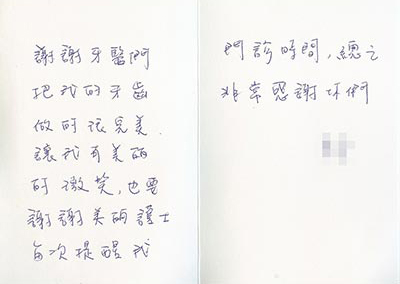 謝謝牙醫們
把我的牙齒
做的很完美.
讓我有美麗
的微笑,也要
謝謝美麗護士
每次提醒我
門診時間,總之
非常感謝你們